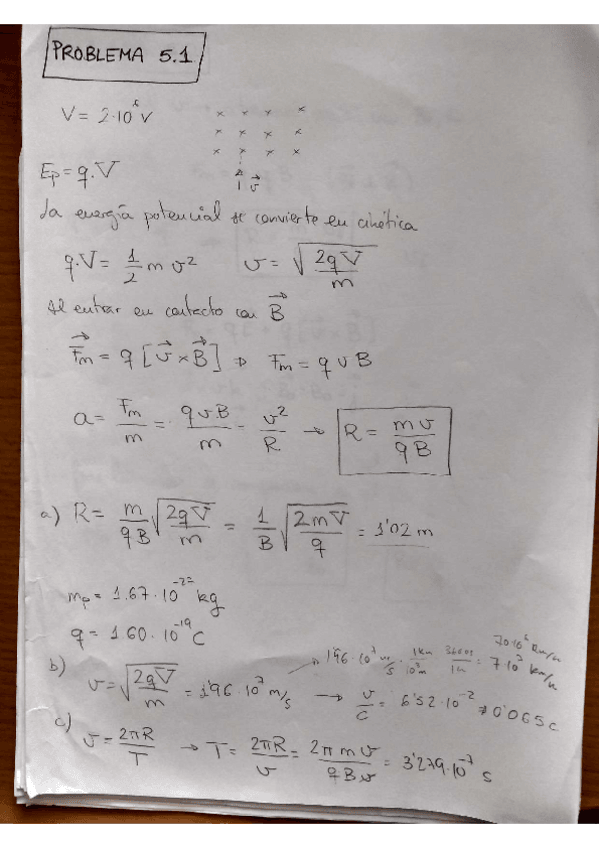 PROBLEMA 5.1
V = 2·10⁶ V
x x x x
x x x x
x x x x
v⃗
Ep = q.V
La energía potencial se convierte en cinética
q.V = 1/2 m v² v = √(2qV/m)
Al entrar en contacto con B⃗
F⃗m = q [v⃗ × B⃗] ⇒ Fm = q v B
a = Fm/m = qvB/m = v²/R → R = mv/qB
a) R = m/qB √(2qV/m) = 1/B √(2mV/q) = 1'02 m
mp = 1.67·10⁻²⁷ kg
q = 1.60·10⁻¹⁹ C
b) v = √(2qV/m) = 1'96·10⁷ m/s → 1'96·10⁷ m/s · 1km/10³m 3600s/1h = 70·10⁶ km/h
7·10⁷ km/h
→ v/c = 6'52·10⁻² ⇒ 0'065c
c) v = 2πR/T → T = 2πR/v = 2πmv/qBv = 3'279·10⁻⁷ s